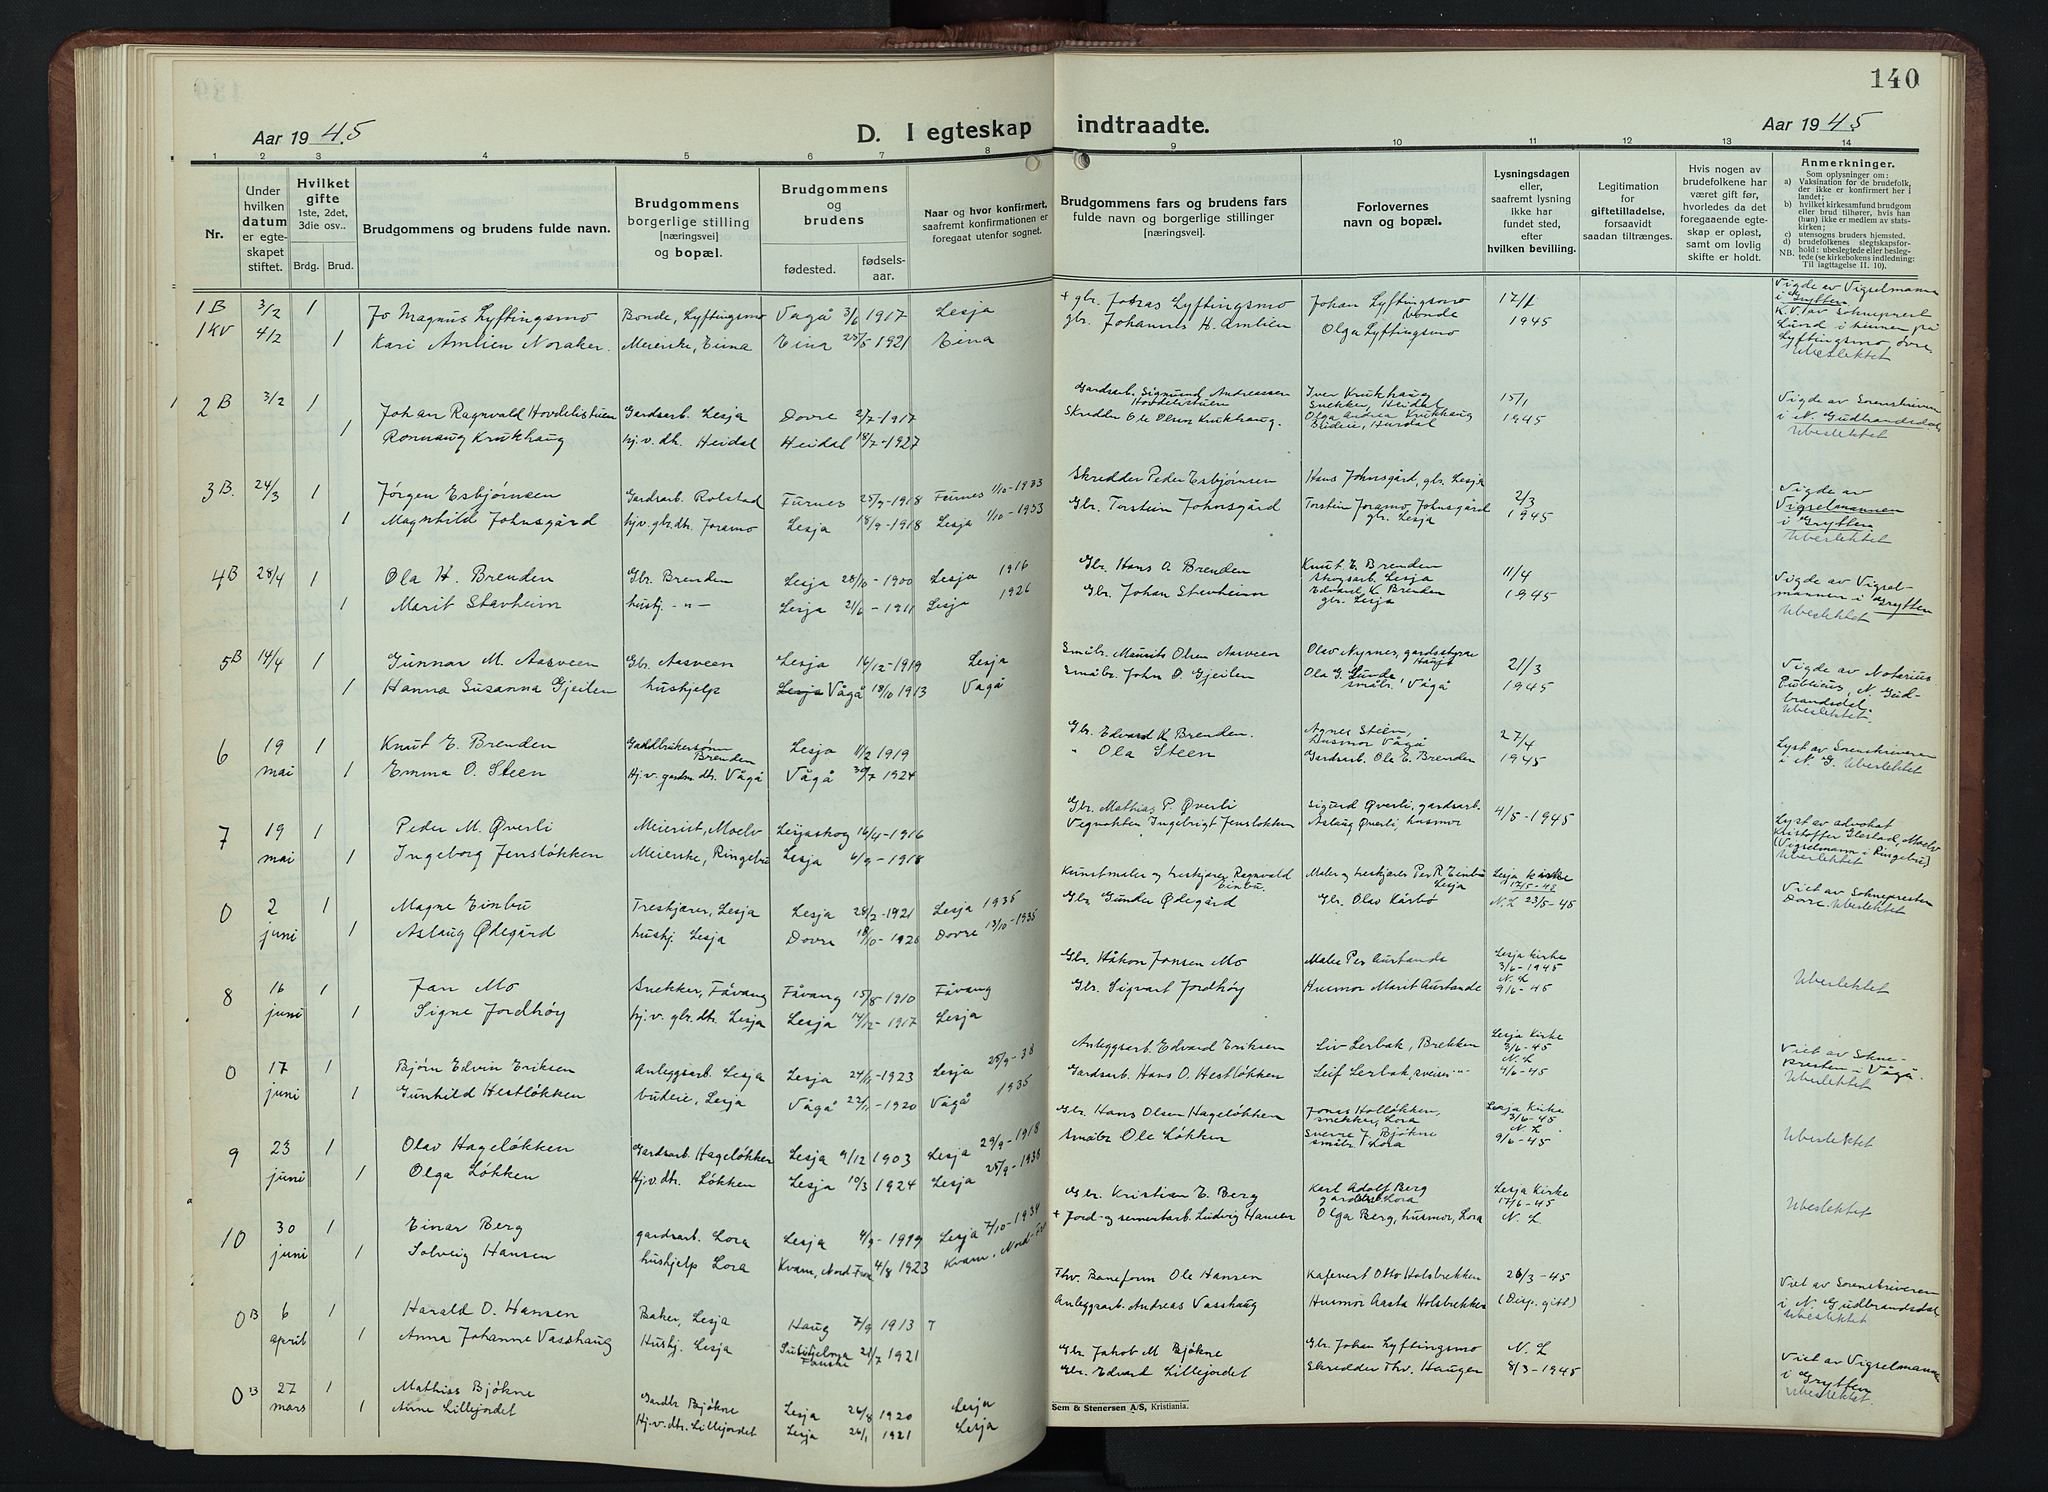 140
Aar 1945
D. I egteskap indtraadte.
Aar 1945
1 2 3 4 5 6 7 8 9 10 11 12 13 14
Nr.
Under hvilken datum er egteskapet stiftet.
Hvilket gifte 1ste, 2det, 3die osv..
Brdg. Brud.
Brudgommens og brudens fulde navn.
Brudgommens borgerlige stilling [næringsvei] og bopæl.
Brudgommens og brudens
fødested. fødselsaar.
Naar og hvor konfirmert, saafremt konfirmationen er foregaat utenfor sognet.
Brudgommens fars og brudens fars fulde navn og borgerlige stillinger [næringsvei].
Forlovernes navn og bopæl.
Lysningsdagen eller, saafremt lysning ikke har fundet sted, efter hvilken bevilling.
Legitimation for giftetilladelse, forsaavidt saadan tiltrænges.
Hvis nogen av brudefolkene har været gift før, hvorledes da det foregaaende egteskap er opløst, samt om lovlig skifte er holdt.
Anmerkninger.
Som oplysninger om:
a) Vaksination for de brudefolk, der ikke er konfirmert her i landet;
b) hvilket kirkesamfund brudgom eller brud tilhører, hvis han (hun) ikke er medlem av statskirken;
c) utensogns bruders hjemsted.
d) brudefolkenes slegtskapsforhold: ubeslegtede eller beslegtede (se kirkebokens indledning: Til iagttagelse II. 10).
NB.
1B 3/2 1 Jo Magnus Lyftingsmo Bonde, Lyftingsmo Vågå 3/6 1917 Lesja + gbr. Jonas Lyftingsmo Johan Lyftingsmo bonde 17/1 1945 Vigde av Vigselmannen i Grytten
1KV 4/2 1 Kari Amlien Noraker Meierske, Eina Eina 25/5 1921 Eina gbr. Johannes H. Amlien Olga Lyftingsmo K.V. av Sokneprest Lund i heimen på Lyftingsmo, øvre. Ubeslektet
2B 3/2 1 Johan Ragnvald Hovdelistuen Gardsarb. Lesja Dovre 2/7-1917 Gardsarb. Sigmund Andreassen Hovdelistuen Iver Krukhaug Snekker, Heidal 15/1 1945 Vigde av Sorenskriveren i N. Gudbrandsdal
1 Ronnaug Krukhaug hj.v. dtr. Heidal Heidal 18/7-1927 Skredder Ole Olsen Krukhaug. Olga Andrea Krukhaug Budeie, Hurdal Ubeslektet
3B. 24/3 1 Jørgen Esbjørnsen Gardsarb. Rolstad Furnes 25/9-1918 Furnes 1/10-1933 Skredder Peder Esbjørnsen Hans Johnsgård, gbr. Lesja 2/3 1945 Vigde av Vigselmannen i Grytten
1 Magnhild Johnsgård hj.v. gbr. dtr. Joramo Lesja 18/9-1918 Lesja 1/10-1933 Gbr. Torstein Johnsgård Torstein Joramo Johnsgård gbr. Lesja Ubeslektet
4B 28/4 1 Ola H. Brenden Gbr. Brenden Lesja 28/10-1900 Lesja 1916 Gbr. Hans A Brenden Knut E. Brenden skogsarb. Lesja 11/4 1945 Vigde av Vigselmannen i Grytten
1 Marit Stavheim hushj. -"- Lesja 21/6-1911 Lesja 1926 Gbr. Johan Stavheim Edvard K. Brenden gbr. Lesja Ubeslektet
5B 14/4 1 Gunnar M. Aasveen Gbr. Aasveen Lesja 16/12-1919 Lesja Småbr. Maurits Olsen Aasveen Olav Nyrnes, gardsstyrar 21/3 1945 Vigde av Notarius Publicus, N. Gudbrandsdal.
1 Hanna Susanna Gjeilen hushjelp Lesja Vågå 18/10 1913 Vågå Småbr. John O. Gjeilen Ola G. Sunde småbr. Vågå Ubeslektet.
6 19 mai 1 Knut E. Brenden Gardbrukersønn Brenden Lesja 11/2 1919 Gbr. Edvard K Brenden. Agnes Steen, husmor Vågå 27/4 1945 Lyst av Sorenskriveren i N. G. Ubeslektet
1 Emma O. Steen Hj.v. gardm. dtr. Vågå Vågå 30/7 1924 " Ola Steen Gardsarb. Ola E. Brenden
7 19 mai 1 Peder M. Øverli Meierist, Moelv Lesjaskog 16/4-1916 Gbr. Mathias P. Øverli Sigurd Øverli, gardsarb. 4/5-1945 Lyst av advokat Kristoffer Glestad, Moelv (Vigselmann i Ringebu)
1 Ingeborg Jensløkken Meierske, Ringebu Lesja 6/9-1918 Vegvokter Ingebrigt Jensløkken Aslaug Øverli, husmor Ubeslektet
0 2 juni 1 Magne Einbu Treskjærer, Lesja Lesja 28/2-1921 Lesja 1935 Kunstmaler og treskjærer Ragnvald Einbu. Maler og treskjærer Per R. Einbu Lesja Lesja kirke 17/5-45 Viet av Soknepresten Dovre. Ubeslektet
1 Aslaug Ødegård hushj. Lesja Dovre 18/10-1920 Dovre 13/10-1935 Gbr. Gunder Ødegård Gbr. Olav Kårbø N.L 23/5-45
8 16 juni 1 Jan Mo Snekker, Fåvang Fåvang 15/8 1910 Fåvang Gbr. Håkon Jansen Mo Maler Per Aurtande Lesja kirke 3/6-1945 Ubeslektet
1 Signe Jordhøy hj.v. gbr. dtr. Lesja Lesja 14/12-1917 Lesja Gbr. Sigvart Jordhøy Husmor Marit Aurtande N. L 9/6-45
0 17 juni 1 Bjørn Edvin Eriksen Anleggsarb. Lesja Lesja 24/11-1923 Lesja 25/9-38 Anleggsarb. Edvard Eriksen Liv Lerbak, Brekken Lesja Kirke 3/6-45 Viet av Soknepresten - Vågå.
1 Gunhild Hestløkken budeie, Lesja Vågå 22/11-1920 Vågå 1935 Gardsarb. Hans O. Hestløkken Leif Lerbak, sveiser -"- N. L 4/6-45 Ubeslektet
9 23 juni 1 Olav Hageløkken Gardsarb. Hageløkken Lesja 9/12 1903 Lesja 29/9-1918 Gbr. Hans Olsen Hageløkken Jonas Holløkken, snekker, Lora Lesja Kirke 3/6-45 Ubeslektet
1 Olga Løkken Hj.v. dtr. Løkken Lesja 10/3 1924 Lesja 25/9-1938 Småbr. Ole Løkken Sverre J. Bjøkne småbr. Lora N. L 9/6-45
10 30 juni 1 Einar Berg gardsarb. Lora Lesja 4/9-1919 Lesja 7/10-1934 Gbr. Kristian E. Berg Karl Adolf Berg Lora Lesja Kirke 17/6-45 Ubeslektet
1 Solveig Hansen hushjelp Lora Kvam, Nord Fron 4/8 1923 Kvam, Nord-Fr + Jord- og sementarb. Ludvig Hansen Olga Berg, husmor, Lora N. L
0B 6 april 1 Harald O. Hansen Baker, Lesja Haug 7/9 1913 ? Fhv. Baneform Ole Hansen Kafevert Otto Holsbrekken 26/3-45 Viet av Sorenskriveren i N. Gudbrandsdal
1 Anna Johanne Vasshaug Hushj. Lesja Sulitjelma Fauske 21/7 1921 Anleggsarb. Andreas Vasshaug Husmor Aasta Holsbrekken (Disp. gitt) Ubeslektet
0B 27 mars 1 Mathias Bjøkne Gardbr Bjøkne Lesja 26/8 1920 Lesja Gbr Jakob M Bjøkne Gbr. Johan Lyftingsmo N. L Viet av Vigselmannen i Grytten
1 Anne Lillejordet Hj.v. dtr. Lillejordet Lesja 26/1 1921 Lesja Gbr. Edvard Lillejordet Skredder Thv. Haugen 8/3-1945 Ubeslektet.
Sem & Stenersen A/S, Kristiania.